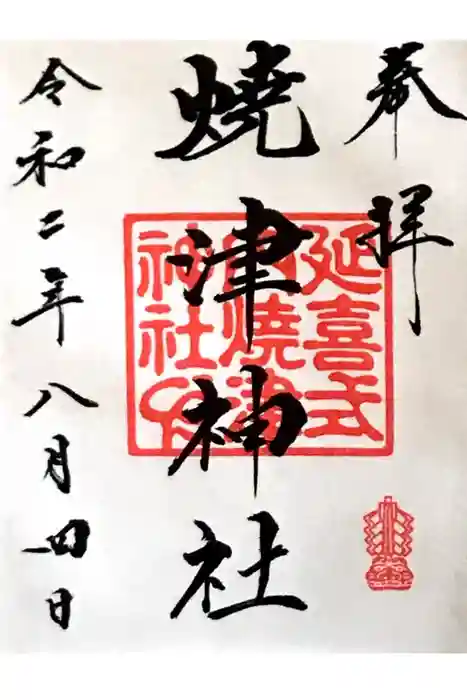 奉拝
焼津神社
令和二年八月四日
延喜式
内焼津
神社印